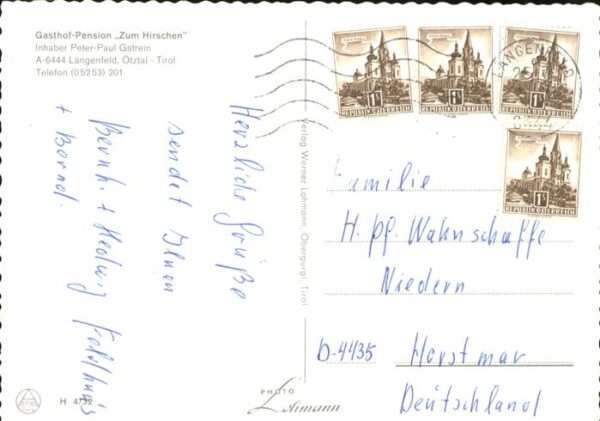 Gasthof-Pension „Zum Hirschen"
Inhaber Peter-Paul Gstrein
A-6444 Längenfeld, Ötztal - Tirol
Telefon (0 52 53) 201
Herzliche Grüße
sendet Ihnen
Bernh. + Hedwig Feldhaus
+ Bernd.
Verlag Werner Lohmann, Obergurgl, Tirol
PHOTO
Lohmann
H 4732
LÄNGENFELD
REPUBLIK ÖSTERREICH
REPUBLIK ÖSTERREICH
REPUBLIK ÖSTERREICH
REPUBLIK ÖSTERREICH
Familie
H. Wahnschaffe
Niedern
D-4435 Horstmar
Deutschland